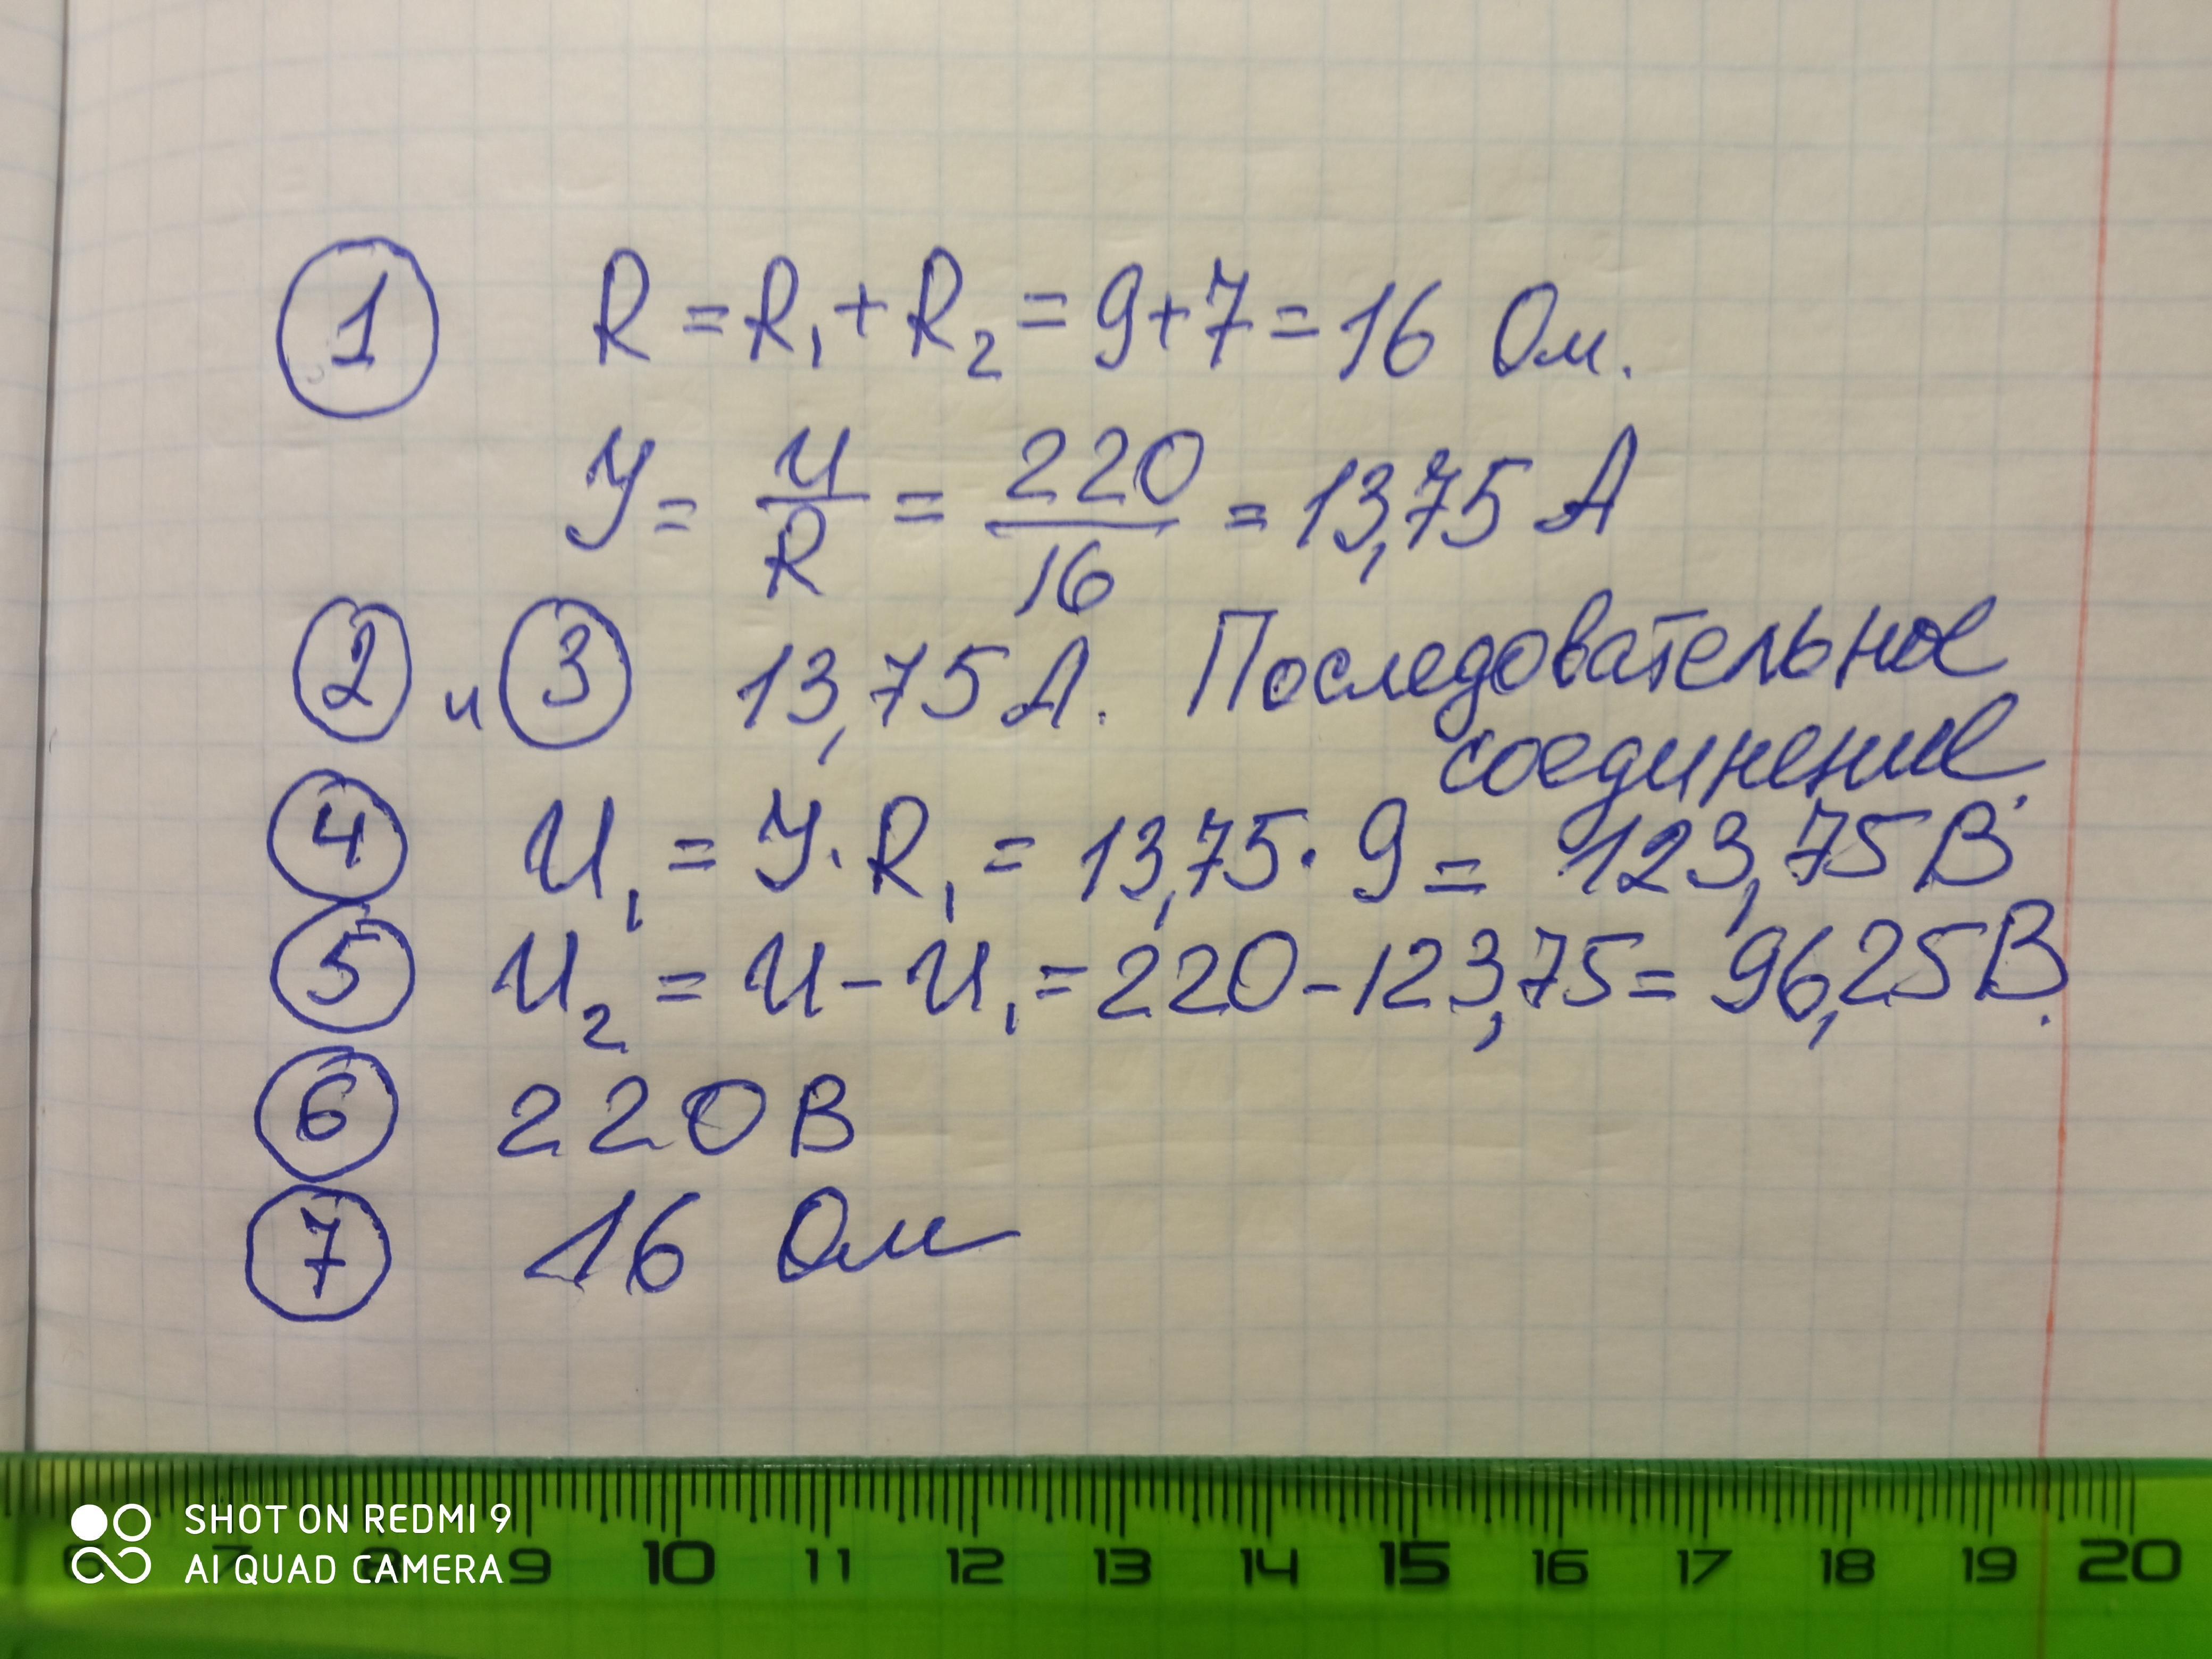 1 R = R₁ + R₂ = 9 + 7 = 16 Ом.
У = U/R = 220/16 = 13,75 А
2 и 3 13,75 А. Последовательное
соединение.
4 U₁ = У · R₁ = 13,75 · 9 = 123,75 В
5 U₂ = U - U₁ = 220 - 123,75 = 96,25 В.
6 220 В
7 16 Ом
SHOT ON REDMI 9
AI QUAD CAMERA
6 7 8 9 10 11 12 13 14 15 16 17 18 19 20